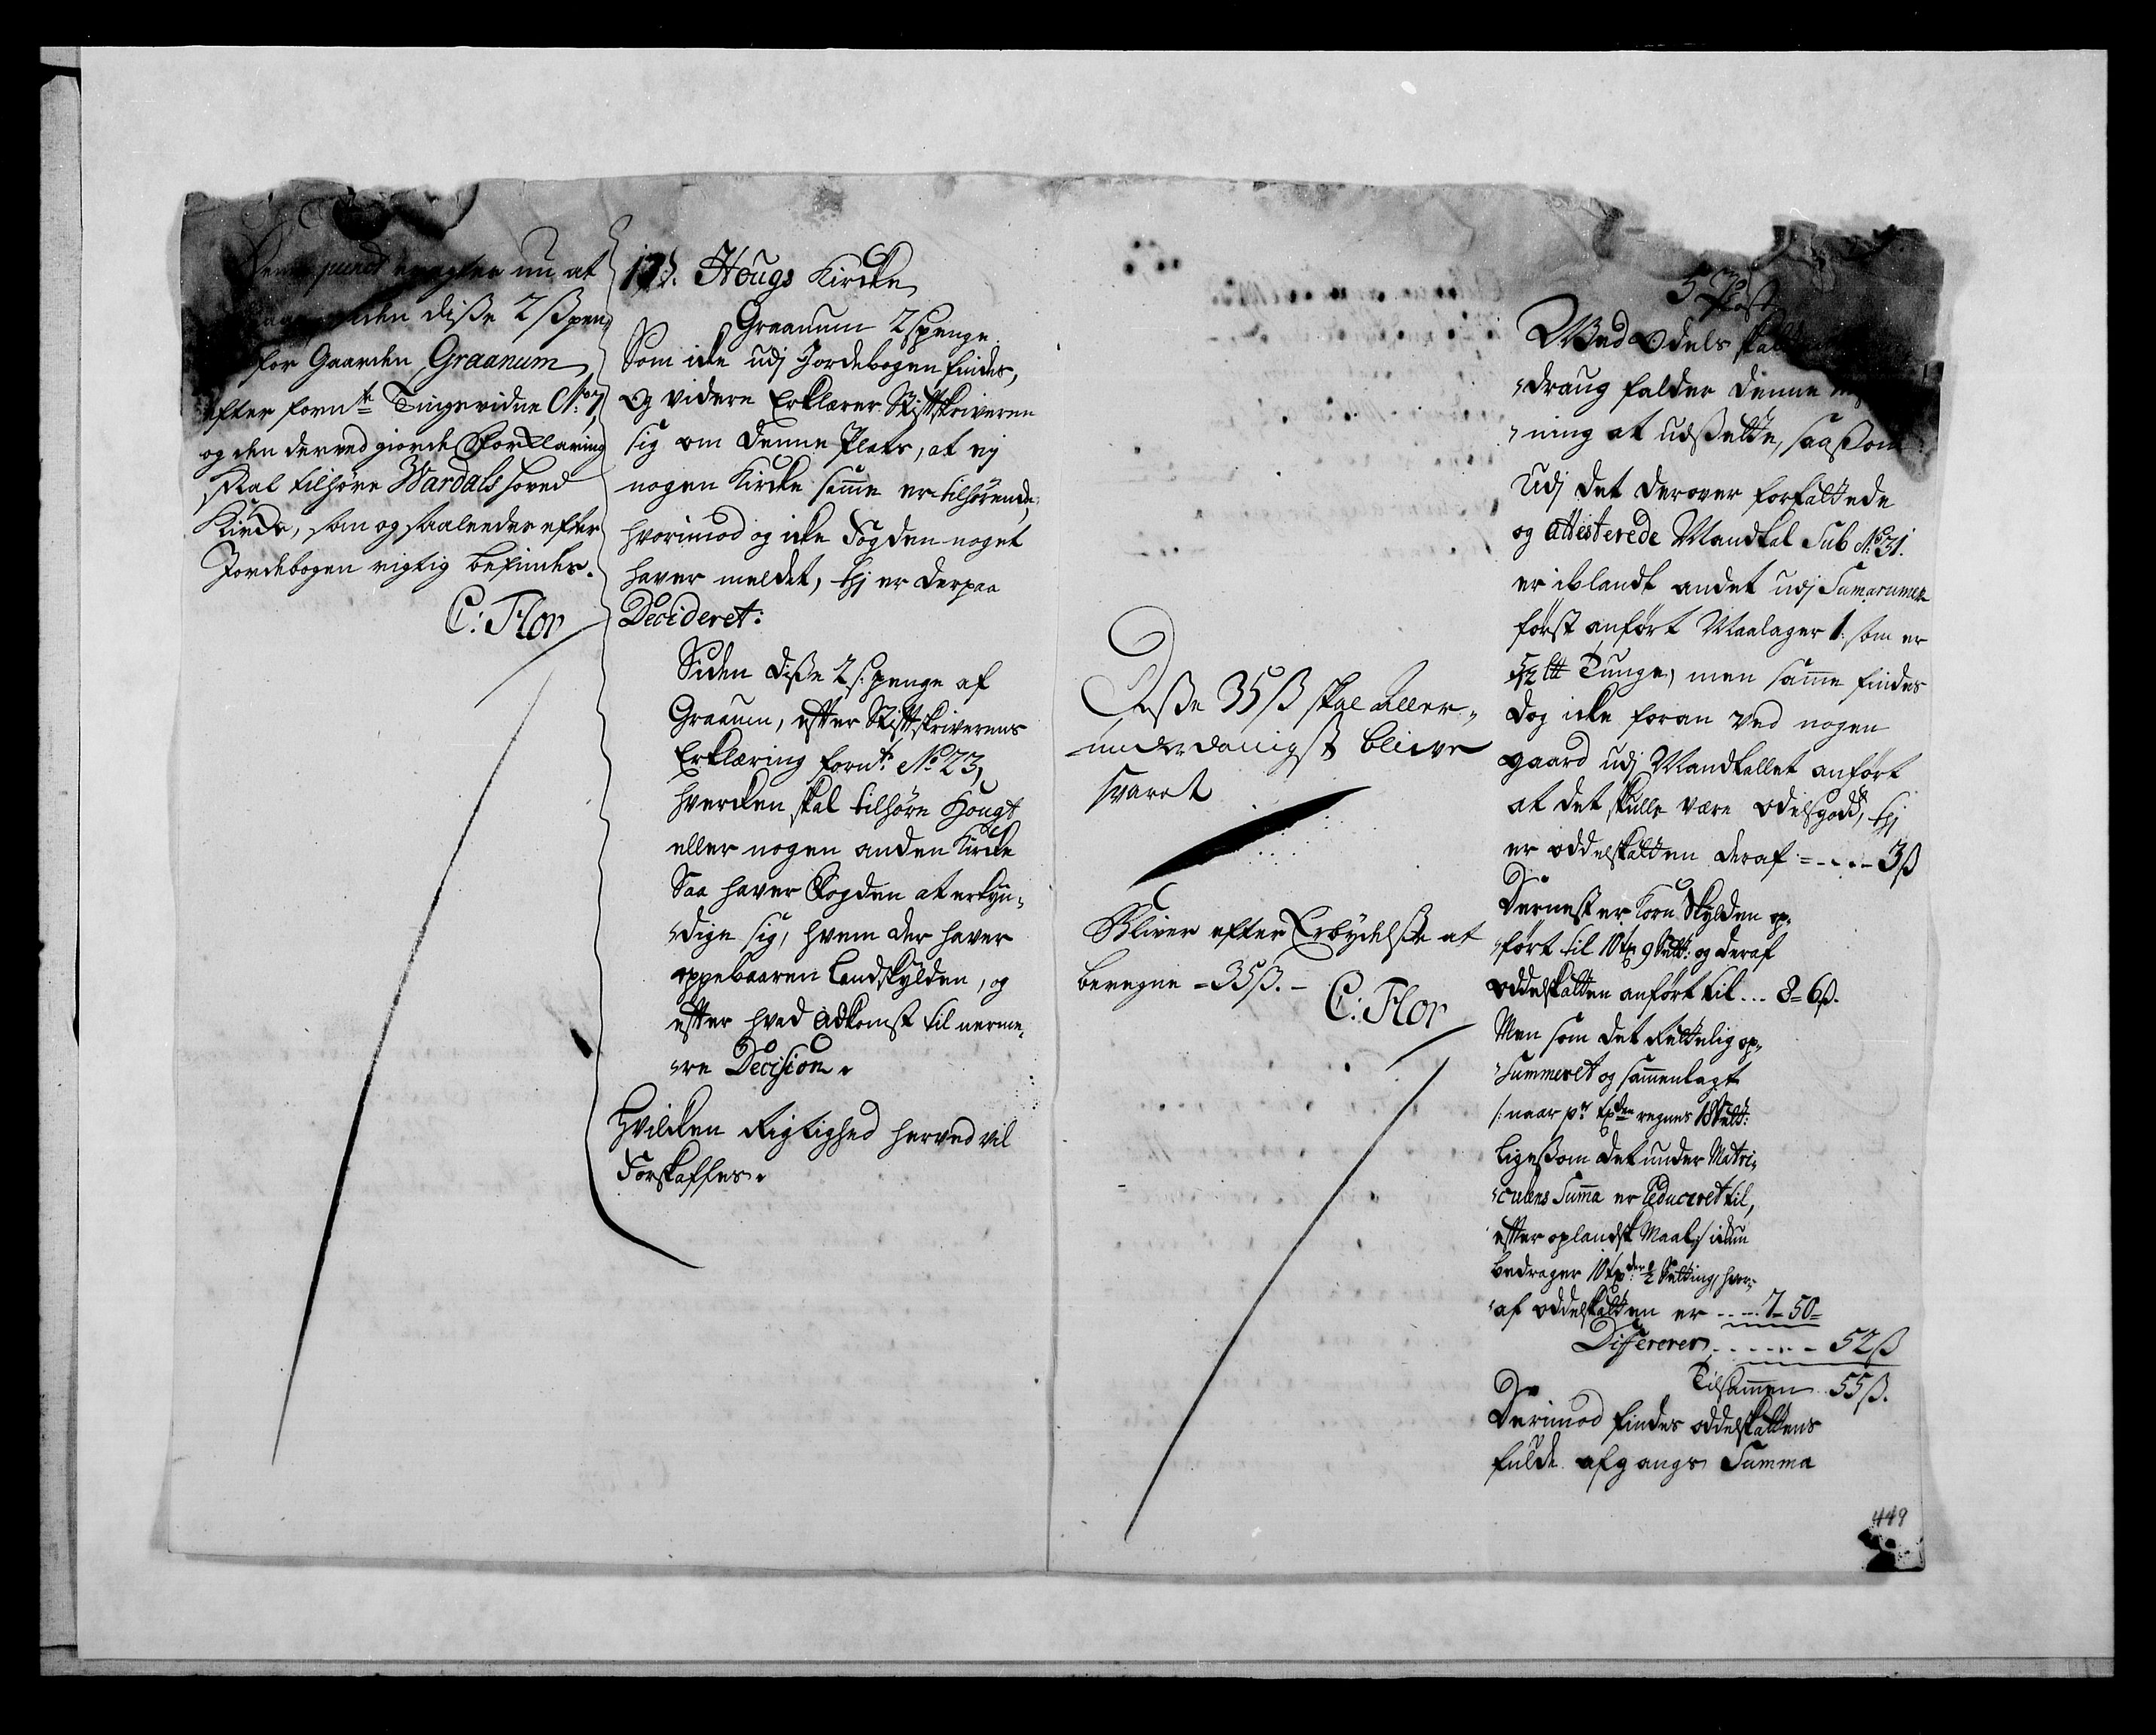 punct nu at
disse 2 ß pen,
for Gaarden Graanum,
efter forn:te Tingsvidne No: 7,
og den derved giorde Forklaring
skal tilhøre Wardals hoved
Kirke, som og saaleedes efter
Jordebogen rigtig befindes.
C: Flor
17). Hougs Kircke
Graanum 2 s penge
Som icke udj Jordebogen findes,
Og videre Erklærer Stiftskriveren
sig om denne Plads, at ej
nogen Kircke samme er tilhørende,
hvorimod og icke Fogden noget
haver meldet, thj er derpaa
Decideret:
Siden disse 2 s: penge af
Graaum, efter Stiftskriverens
Erklæring forn:te No 23,
hvercken skal tilhøre Hougs
eller nogen anden Kircke
Saa haver Fogden at erkyn-
dige sig, hvem der haver
oppebaaren Landskylden, og
efter hvad Adkomst til nerme-
re Decision.
Hvilcken Rigtighed herved vil
Forskaffes.
Disse 35 ß skal aller-
underdanigst blive
svaret
Bliver efter Erbydelse at
beregne = 35 ß. -
C: Flor
5 Post
Wed Odels skatt
draug falder denne
ning at udsette, saasom
Udj det derover forfattede
og attesterede Mandtal Sub No: 31.
er iblandt andet udj Sumarumen
først anført Maalager 1. som er
Tunge, men samme findes
dog icke foran ved nogen
gaard udj Mandtallet anført
at det skulle være Odelsgodz, thj
er oddelskatten deraf = ... - 3 ß
Dernest er Korn Skylden op-
ført til 10 tp 9 Sett: og deraf
Oddelskatten anført til ... 8 = 6 ß.
Men som det Rettelig op-
Summeret og sammenlagt
/: naar pr tp:den regnes 18 Sett:
ligesom det under Matri-
culens Summa er Reduceret til,
efter oplandsk Maal :/ icun
bedrager 10 tp:der ½ Setting, hvor-
af oddelskatten er .... 7 = 50 =
Differerer ....... 52 ß
Tilsammen .. 55 ß.
Derimod findes oddelskattens
fulde afgangs Summa
449